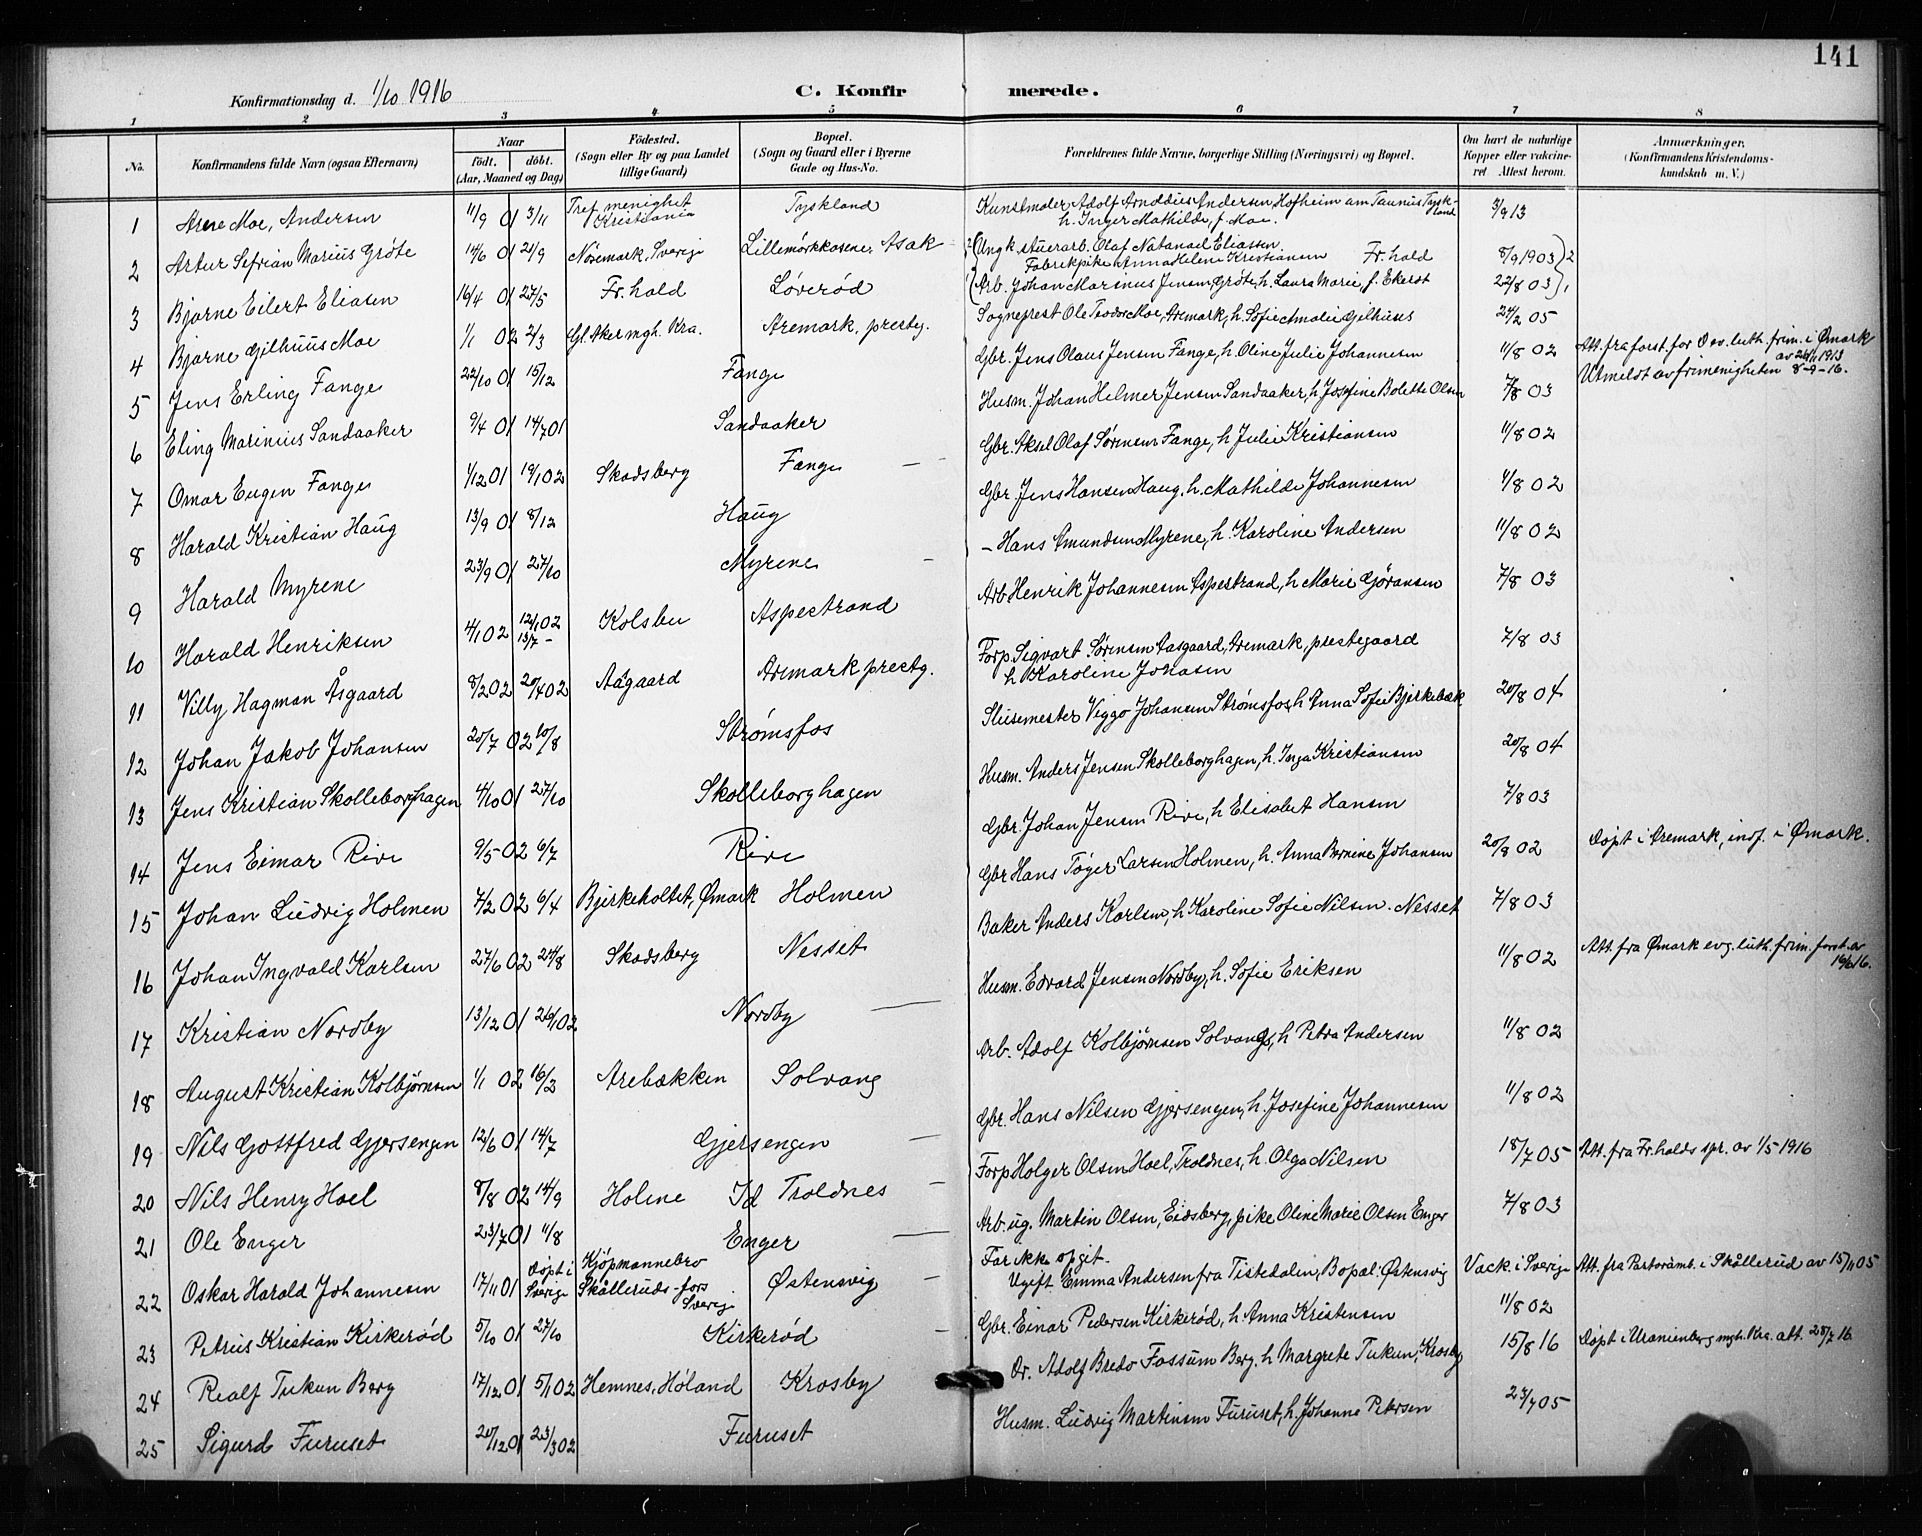 141
Konfirmationsdag d. 1/10 1916
C. Konfirmerede.
1 2 3 4 5 6 7 8
No.
Konfirmandens fulde Navn (ogsaa Efternavn)
Naar
födt. döbt.
(Aar, Maaned og Dag)
Födested.
(Sogn eller By og paa Landet
tillige Gaard)
Bopæl.
(Sogn og Gaard eller i Byerne
Gade og Hus-No.
Forældrenes fulde Navne, borgerlige Stilling (Næringsvei) og Bopæl.
Om havt de naturlige
Kopper eller vakcine-
ret Attest herom.
Anmærkninger,
(Konfirmandens Kristendoms-
kundskab m. V.)
1 Arne Moe, Andersen 11/9 01 3/11 Tref. menighet Kristiania Tyskland Kunstmaler Adolf Arnddius Andersen, Hofheim am Taunus Tyskland h. Inger Mathilde, f. Moe. 3/9 13
2 Artur Sefrian Marius Grøte 14/6 01 21/9 Nösemark, Sverige Lillemørkkasene, Asak Ungk. stuerarb. Olaf Natanael Eliassen. Fabrikpike Anna Helene Kristiansen Fr.hald 8/9 1903 2
3 Bjarne Eilert Eliasen 16/4 01 27/5 Fr.hald Løverød Arb. Johan Marinus Jensen Grøte, h. Laura Marie, f. Ekerot 22/8 03 1
4 Bjarne Gilhuus Moe 1/1 02 2/3 Gl. Aker mgh. Kra. Aremark, prestg. Sogneprest Ole Teodor Moe, Aremark, h. Sofie Amalie Gilhuus 24/2 05
5 Jens Erling Fange 22/10 01 15/12 Fange Gbr. Jens Olaus Jensen Fange, h. Oline Julie Johannesen 11/8 02 Att. fra forst. for D ev. luth. frim. i Ømark av 24/11 1913 Utmeldt av frimenigheten 8-9-16.
6 Eling Marinius Sandaaker 9/4 01 14/7 01 Sandaaker Husm. Johan Helmer Jensen Sandaaker, h. Josefine Bolette Olsen 7/8 03
7 Omar Eugen Fange 1/12 01 19/1 02 Skodsberg Fange Gbr. Aksel Olaf Sørensen Fange, h. Julie Kristiansen 11/8 02
8 Harald Kristian Haug 13/9 01 8/12 Haug Gbr. Jens Hansen Haug, h. Mathilde Johannesen 11/8 02
9 Harald Myrene 23/9 01 27/10 Myrene – Hans Amundsen Myrene, h. Karoline Andersen 11/8 02
10 Harald Henriksen 4/1 02 12/1 02 13/7 – Kolsbu Aspestrand Arb. Henrik Johannesen Aspestrand, h. Marie Gøransen 7/8 03
11 Villy Hagman Åsgaard 8/2 02 20/4 02 Aagaard Aremark prestg. Forp. Sigvart Sørensen Aasgaard, Aremark, prestegaard h. Karoline Johasen 7/8 03
12 Johan Jakob Johansen 20/7 02 10/8 Strømsfos Slusemester Viggo Johansen Strømsfos, h. Anna Sofie Bjerkebæk 20/8 04
13 Jens Kristian Skolleborghagen 4/10 01 27/10 Skolleborghagen Husm. Anders Jensen Skolleborghagen, h. Inga Kristiansen 20/8 04
14 Jens Eimar Rive 9/5 02 6/7 Rive Gbr. Johan Jensen Rive, h. Elisabet Hansen 7/8 03
15 Johan Ludvig Holmen 7/2 02 6/4 Bjerkeholtet, Ømark Holmen Gbr. Hans Tøger Larsen Holmen, h. Anna Bernine Johansen 20/8 02 Døpt i Aremark, indf. i Ømark.
16 Johan Ingvald Karlsen 27/6 02 24/8 Skodsberg Nesset Baker Anders Karlsen, h. Karoline Sofie Nilsen. Nesset 7/8 03
17 Kristian Nordby 13/12 01 26/1 02 Nordby Husm. Edvard Jensen Nordby, h. Sofie Eriksen 11/8 02 Att. fra Ømark evg. luth. frim. forst. av 19/6 16.
18 August Kristian Kolbjørnsen 1/1 02 16/2 Arebækken Solvang Arb. Adolf Kolbjørnsen Solvang, h. Petra Andersen 11/8 02
19 Nils Gottfred Gjersengen 12/6 01 14/7 Gjersengen Gbr. Hans Nilsen Gjersengen, h. Josefine Johannesen 11/8 02
20 Nils Henry Hoel 8/8 02 14/9 Holme Id Troldnes Forp. Holger Olsen Hoel, Troldnes, h. Olga Nilsen 18/7 05 Att. fra Fr.halds spr. av 1/5 1916
21 Ole Enger 23/7 01 11/8 Enger Arb. ug. Martin Olsen, Eidsberg, pike Oline Marie Olsen Enger 7/8 03
22 Oskar Harald Johannesen 17/11 01 døpt i Sverige Kjøpmannebro Skålleruds-fors Sverige Østensvig Far ikke opgit. Ugift Emma Andersen fra Tistedalen, Bopæl: Østensvig Vack. i Sverige Att. fra Pastorämb. i Skållerud av 15/11 05
23 Petrus Kristian Kirkerød 5/10 01 27/10 Kirkerød Gbr. Einar Pedersen Kirkerød, h. Anna Kristensen 11/8 02
24 Realf Tukun Berg 17/12 01 5/1 02 Hemnes, Høland Krosby Dr. Adolf Bredo Fossum Berg, h. Margrete Tukun, Krosby 15/8 16 Døpt i Uranienborg mgh. Kra. att. 28/7 16
25 Sigurd Furuset 20/12 01 23/3 02 Furuset Husm. Ludvig Martinsen Furuset, h. Johanne Petersen 23/7 05